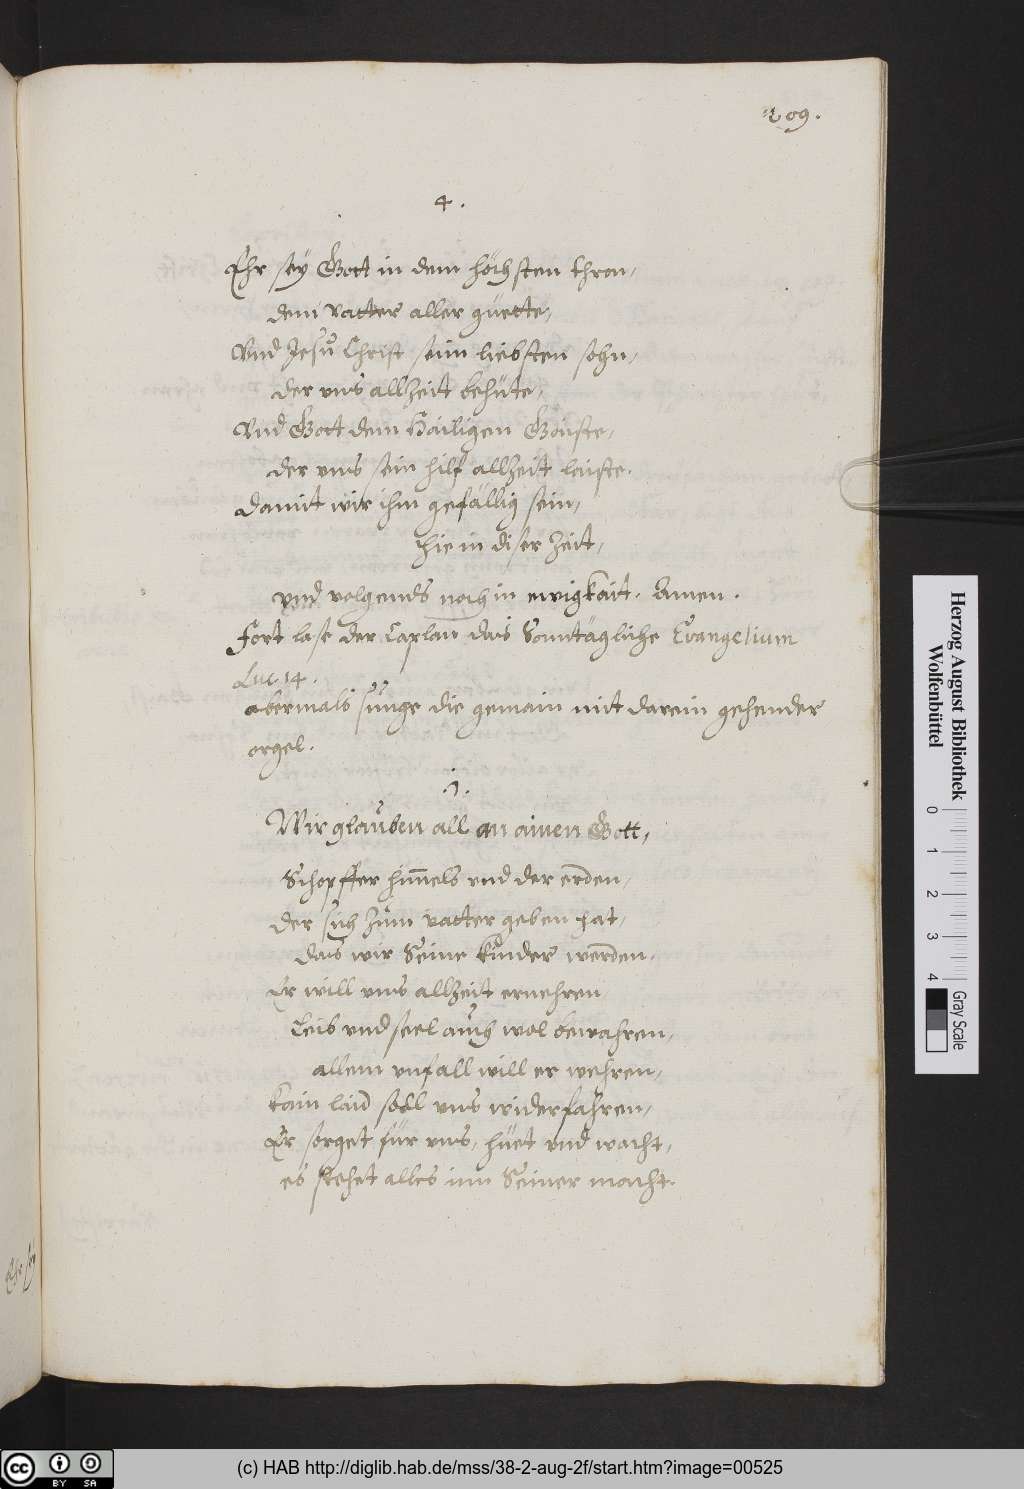 209.
4.
Ehr sey Gott in dem höchsten thron,
dem vatter aller güette,
Vnd Jesu Christ seim liebsten sohn,
der vns allzeit behüte,
Vnd Gott dem Hailigen Gaiste,
der vns sein hilf allzeit laiste.
damit wir ihm gefällig sein,
hie in diser Zeit,
vnd volgends noch in ewigkait. Amen.
Fort lase der Caplan das Sonntägliche Evangelium
Luc. 14.
abermals sunge die gemain mit darein gehender
orgel.
1.
Wir glauben all an ainen Gott,
Schopffer him̅els vnd der erden,
der sich zum vatter geben hat,
das wir Seine kinder werden.
Er will vns allzeit ernehren
Leib vnd seel auch wol bewahren,
allem vnfall will er wehren,
kain laid soll vns widerfahren,
Er sorget für vns, hüet vnd wacht,
es stehet alles inn Seiner macht.
Ehr sey
Herzog August Bibliothek
Wolfenbüttel
0 1 2 3 4
Gray Scale
cc BY SA
(c) HAB http://diglib.hab.de/mss/38-2-aug-2f/start.htm?image=00525